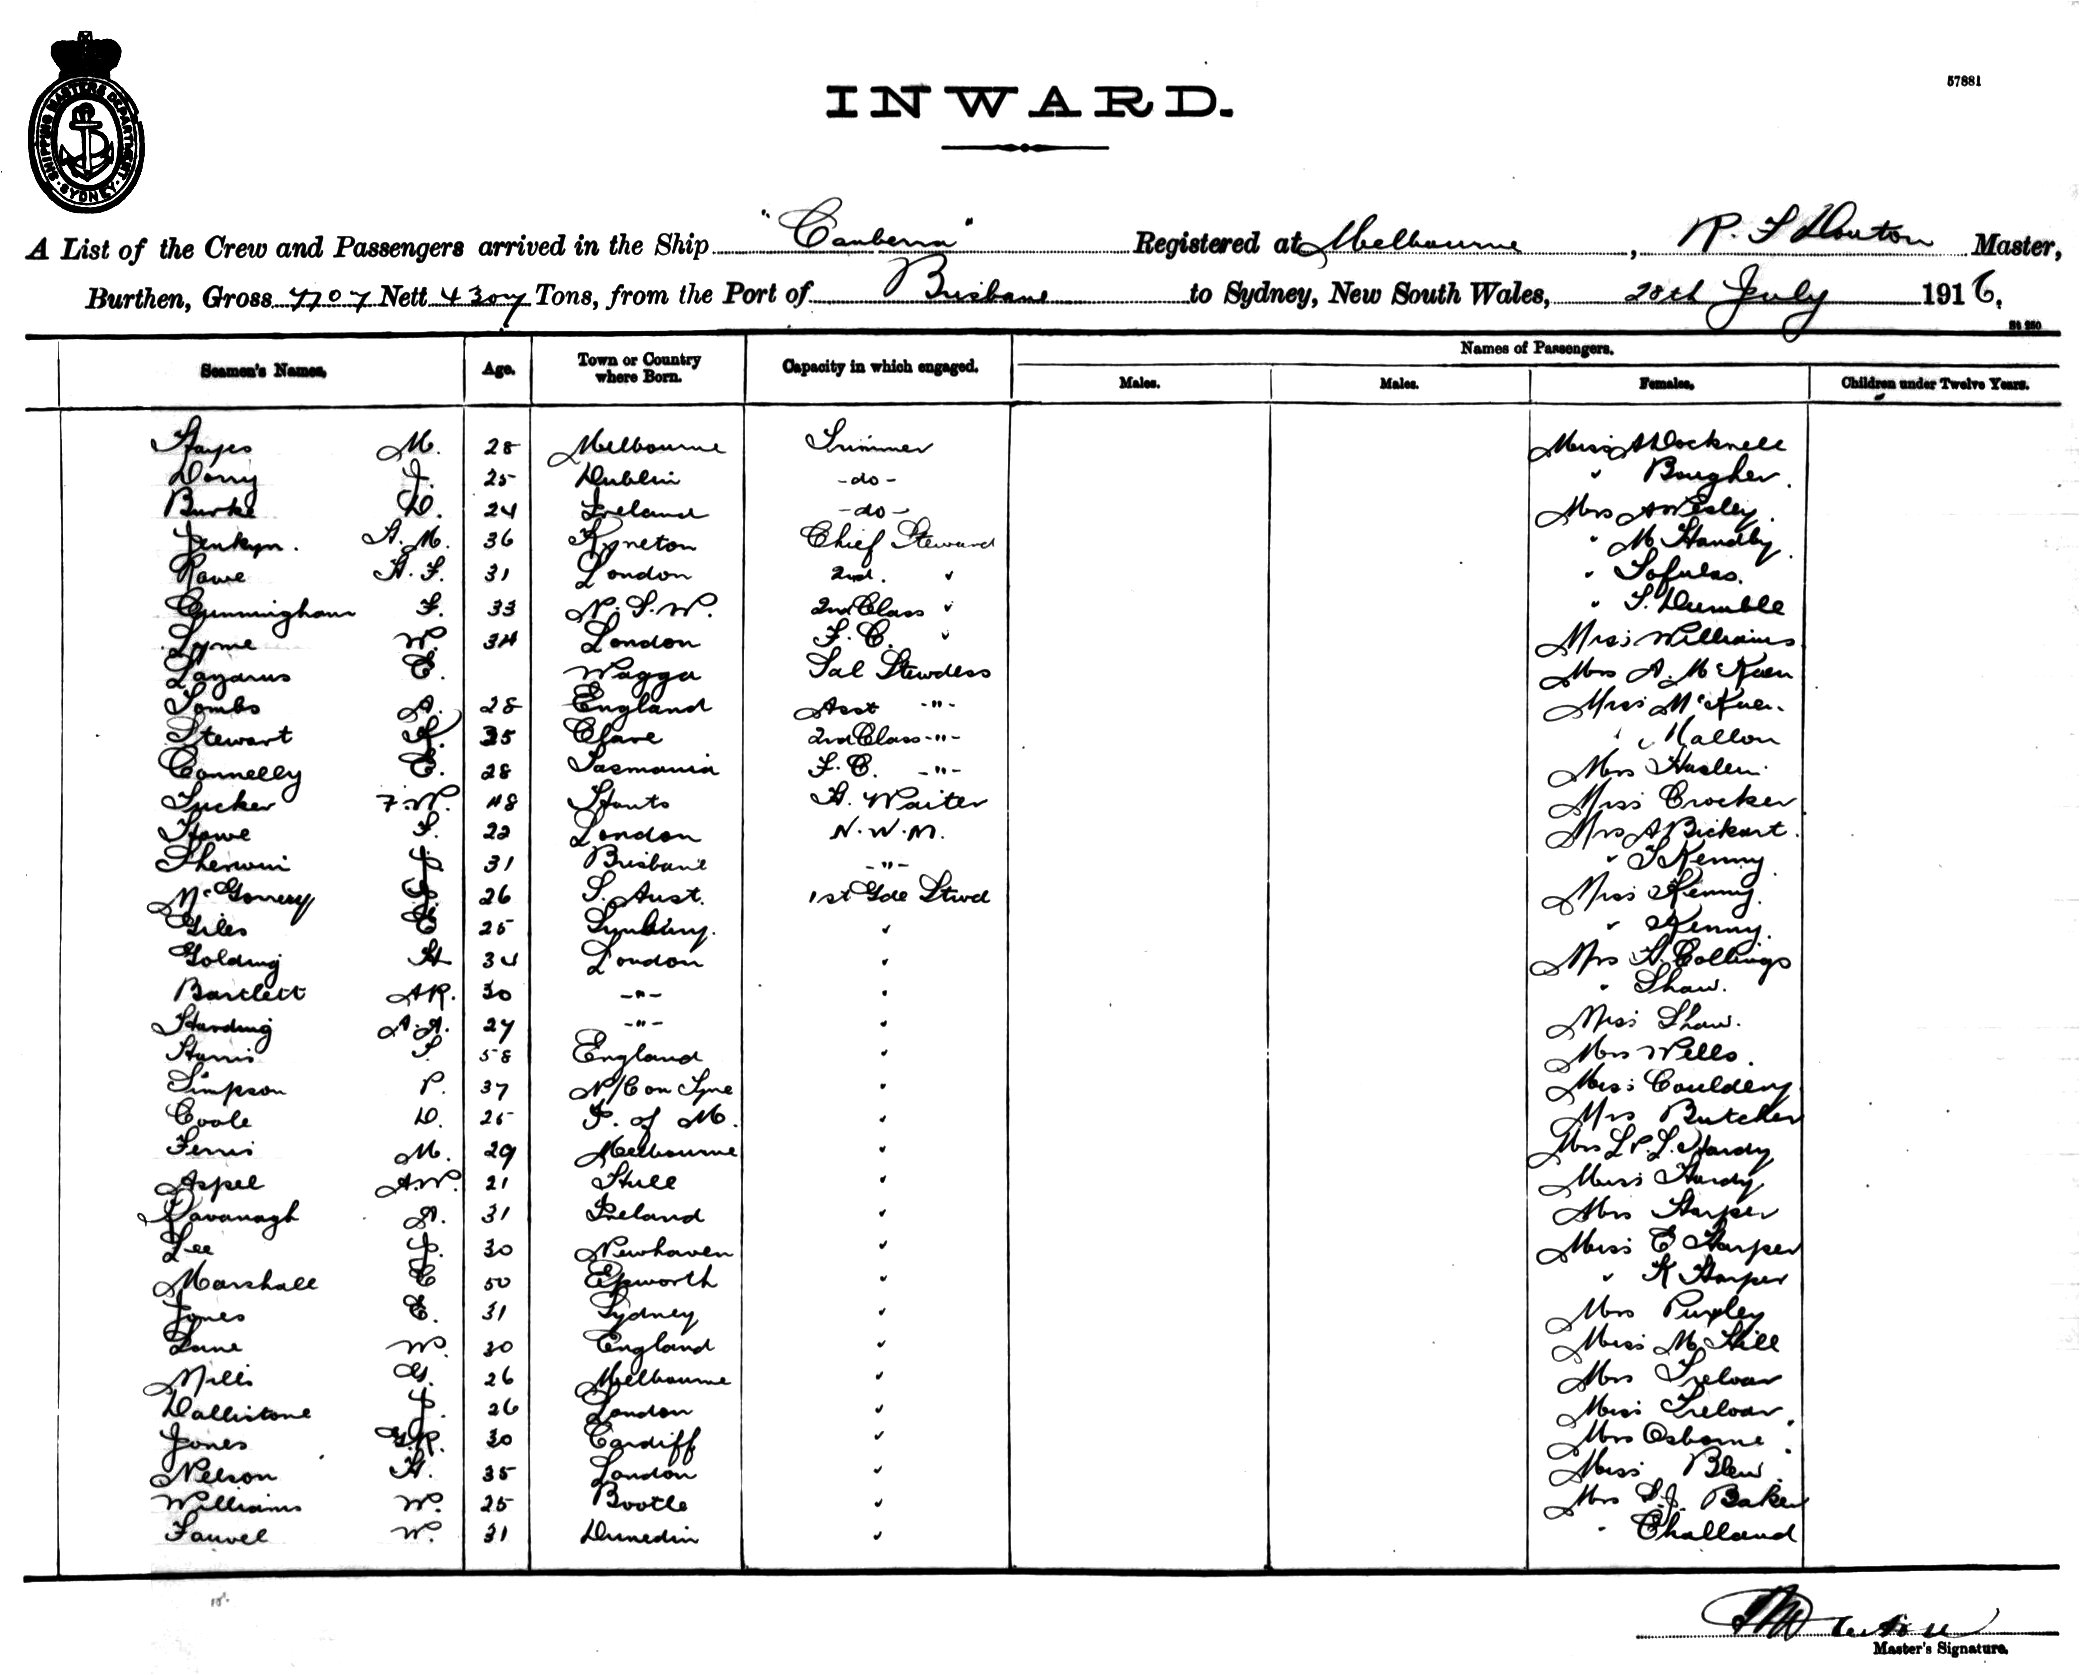 SHIPPING MASTERS DEPARTMENT
SYDNEY
57881
INWARD.
A List of the Crew and Passengers arrived in the Ship "Canberra" Registered at Melbourne, R. F. Master,
Burthen, Gross 7707 Nett 4307 Tons, from the Port of Brisbane to Sydney, New South Wales, 28th July 1916.
Seamen's Names. Age. Town or Country where Born. Capacity in which engaged. Names of Passengers.
Males. Males. Females. Children under Twelve Years.
Hayes M. 28 Melbourne Trimmer Miss A Docknell
Dorry J. 25 Dublin -do- " Bougher.
Burke D. 24 Ireland -do- Mrs A Wesley.
Jenkyn. H. M. 36 Kyneton Chief Steward " M Handby.
Rowe H. F. 31 London 2nd. " "
Cunningham F. 33 N. S. W. 2nd Class " " S. Dumble
Lyme W. 34 London F. C. " Miss Williams
Lazarus E. Wagga Sal Stewdess Mrs A. McKuen
Tombs A. 28 England Asst -"- Miss McKuen.
Stewart H. 35 Clare 2nd Class -"- " Mallon
Connelly E. 28 Tasmania F. C. -"- Mrs Haslem
Tucker F. W. 48 Hants H. Waiter Miss Crocker
Howe F. 22 London N. W. M. Mrs A Bickart.
Sherwin J 31 Brisbane -"- " S Kenny.
McGorrery J. 26 S. Aust. 1st Gde Stwd Miss Kenny.
Giles E 25 " " Kenny.
Golding H 34 London " Mrs H. Collings
Bartlett A R. 30 -"- " " Shaw.
Harding A. A. 27 -"- " Miss Shaw.
Harris S. 58 England " Mrs Wells.
Simpson P. 37 N/C on Tyne " Miss Couldery
Coole D. 25 I. of M. " Mrs Butcher
Ferris M. 29 Melbourne " Mrs L. P. L. Hardy
Aspel A. W. 21 Hull " Miss Hardy
Cavanagh A. 31 Ireland " Mrs Harper
Lee J. 30 Newhaven " Miss E Harper
Marshall C 50 Epworth " " K Harper
Jones E. 31 Sydney " Mrs Purley
Lane W. 30 England " Miss M Hill
Mills G. 26 Melbourne " Mrs Treloar
Dallistone J. 26 London " Miss Treloar.
Jones G. R. 30 Cardiff " Mrs Osborne.
Nelson H. 35 London " Miss Blew.
Williams W. 25 Bootle " Mrs S. J. Baker
Fauvel W. 31 Dunedin " " Challand
Master's Signature.